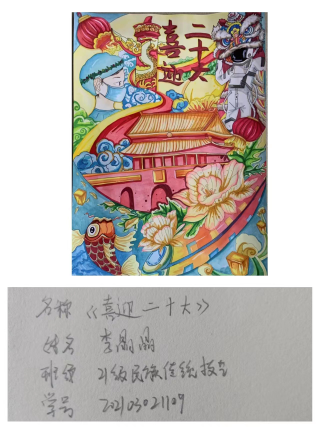 喜迎
二十大
名称 《喜迎二十大》
姓名 李晶晶
班级 21级民族传统技艺
学号 202103021109